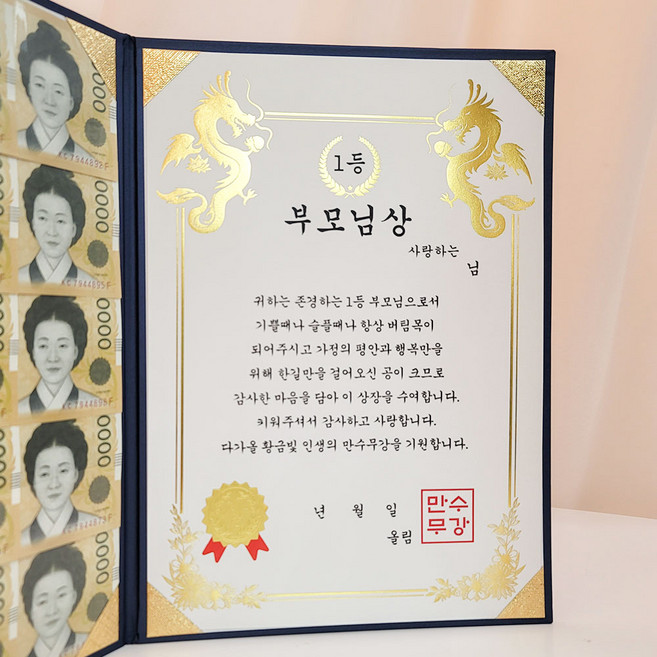 0000
KC7944892F
0000
KC7944895F
0000
KC7944898F
0000
KC7944875F
0000
1등
부모님상
사랑하는
님
귀하는 존경하는 1등 부모님으로서
기쁠때나 슬플때나 항상 버팀목이
되어주시고 가정의 평안과 행복만을
위해 한길만을 걸어오신 공이 크므로
감사한 마음을 담아 이 상장을 수여합니다.
키워주셔서 감사하고 사랑합니다.
다가올 황금빛 인생의 만수무강을 기원합니다.
년 월 일
올림
만수
무강